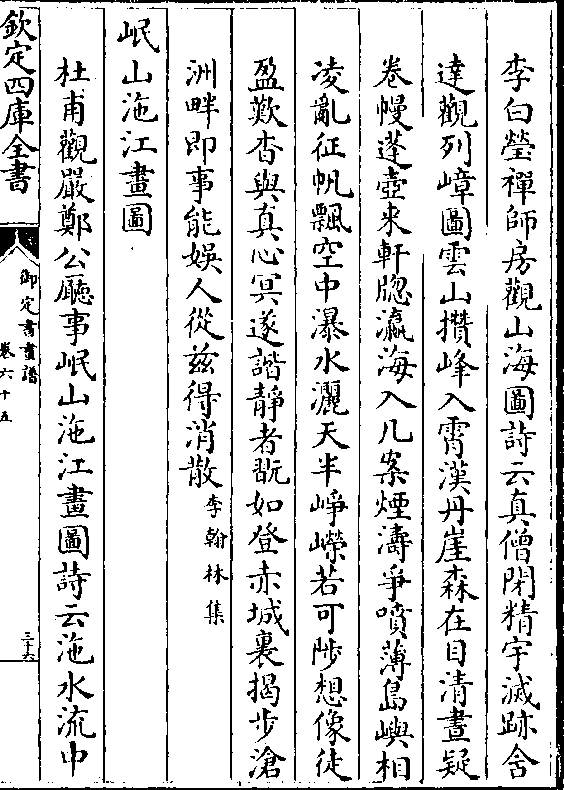 李白瑩禪師房觀山海圖詩云真僧閉精宇滅跡含
達觀列嶂圖雲山攢峰入霄漢丹崖森在目清晝疑
卷幔蓬壺來軒牕瀛海入几案煙濤爭噴薄島嶼相
凌亂征帆飄空中瀑水灑天半崢嶸若可陟想像徒
盈歎杳與真心冥遂諧靜者翫如登赤城裏揭步滄
洲畔即事能娛人從兹得消散李翰林集
岷山沲江畫圖
杜甫觀嚴鄭公廳事岷山沲江畫圖詩云沲水流中
欽定四庫全書
御定書畫譜
卷六十五
三十六